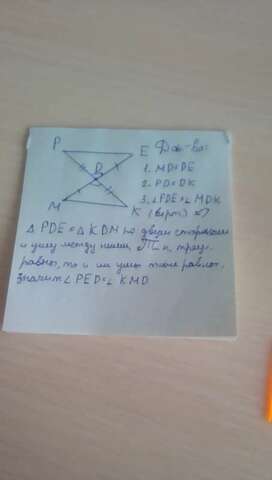 P E Док-во:
D 1. MD=DE
2. PD=DK
3. ∠PDE=∠MDK
M K (верт) =>
Δ PDE = Δ KDM по двум сторонам
и углу между ними, Т.к. треуг.
равны, то и их углы тоже равны.
Значит ∠ PED=∠ KMD